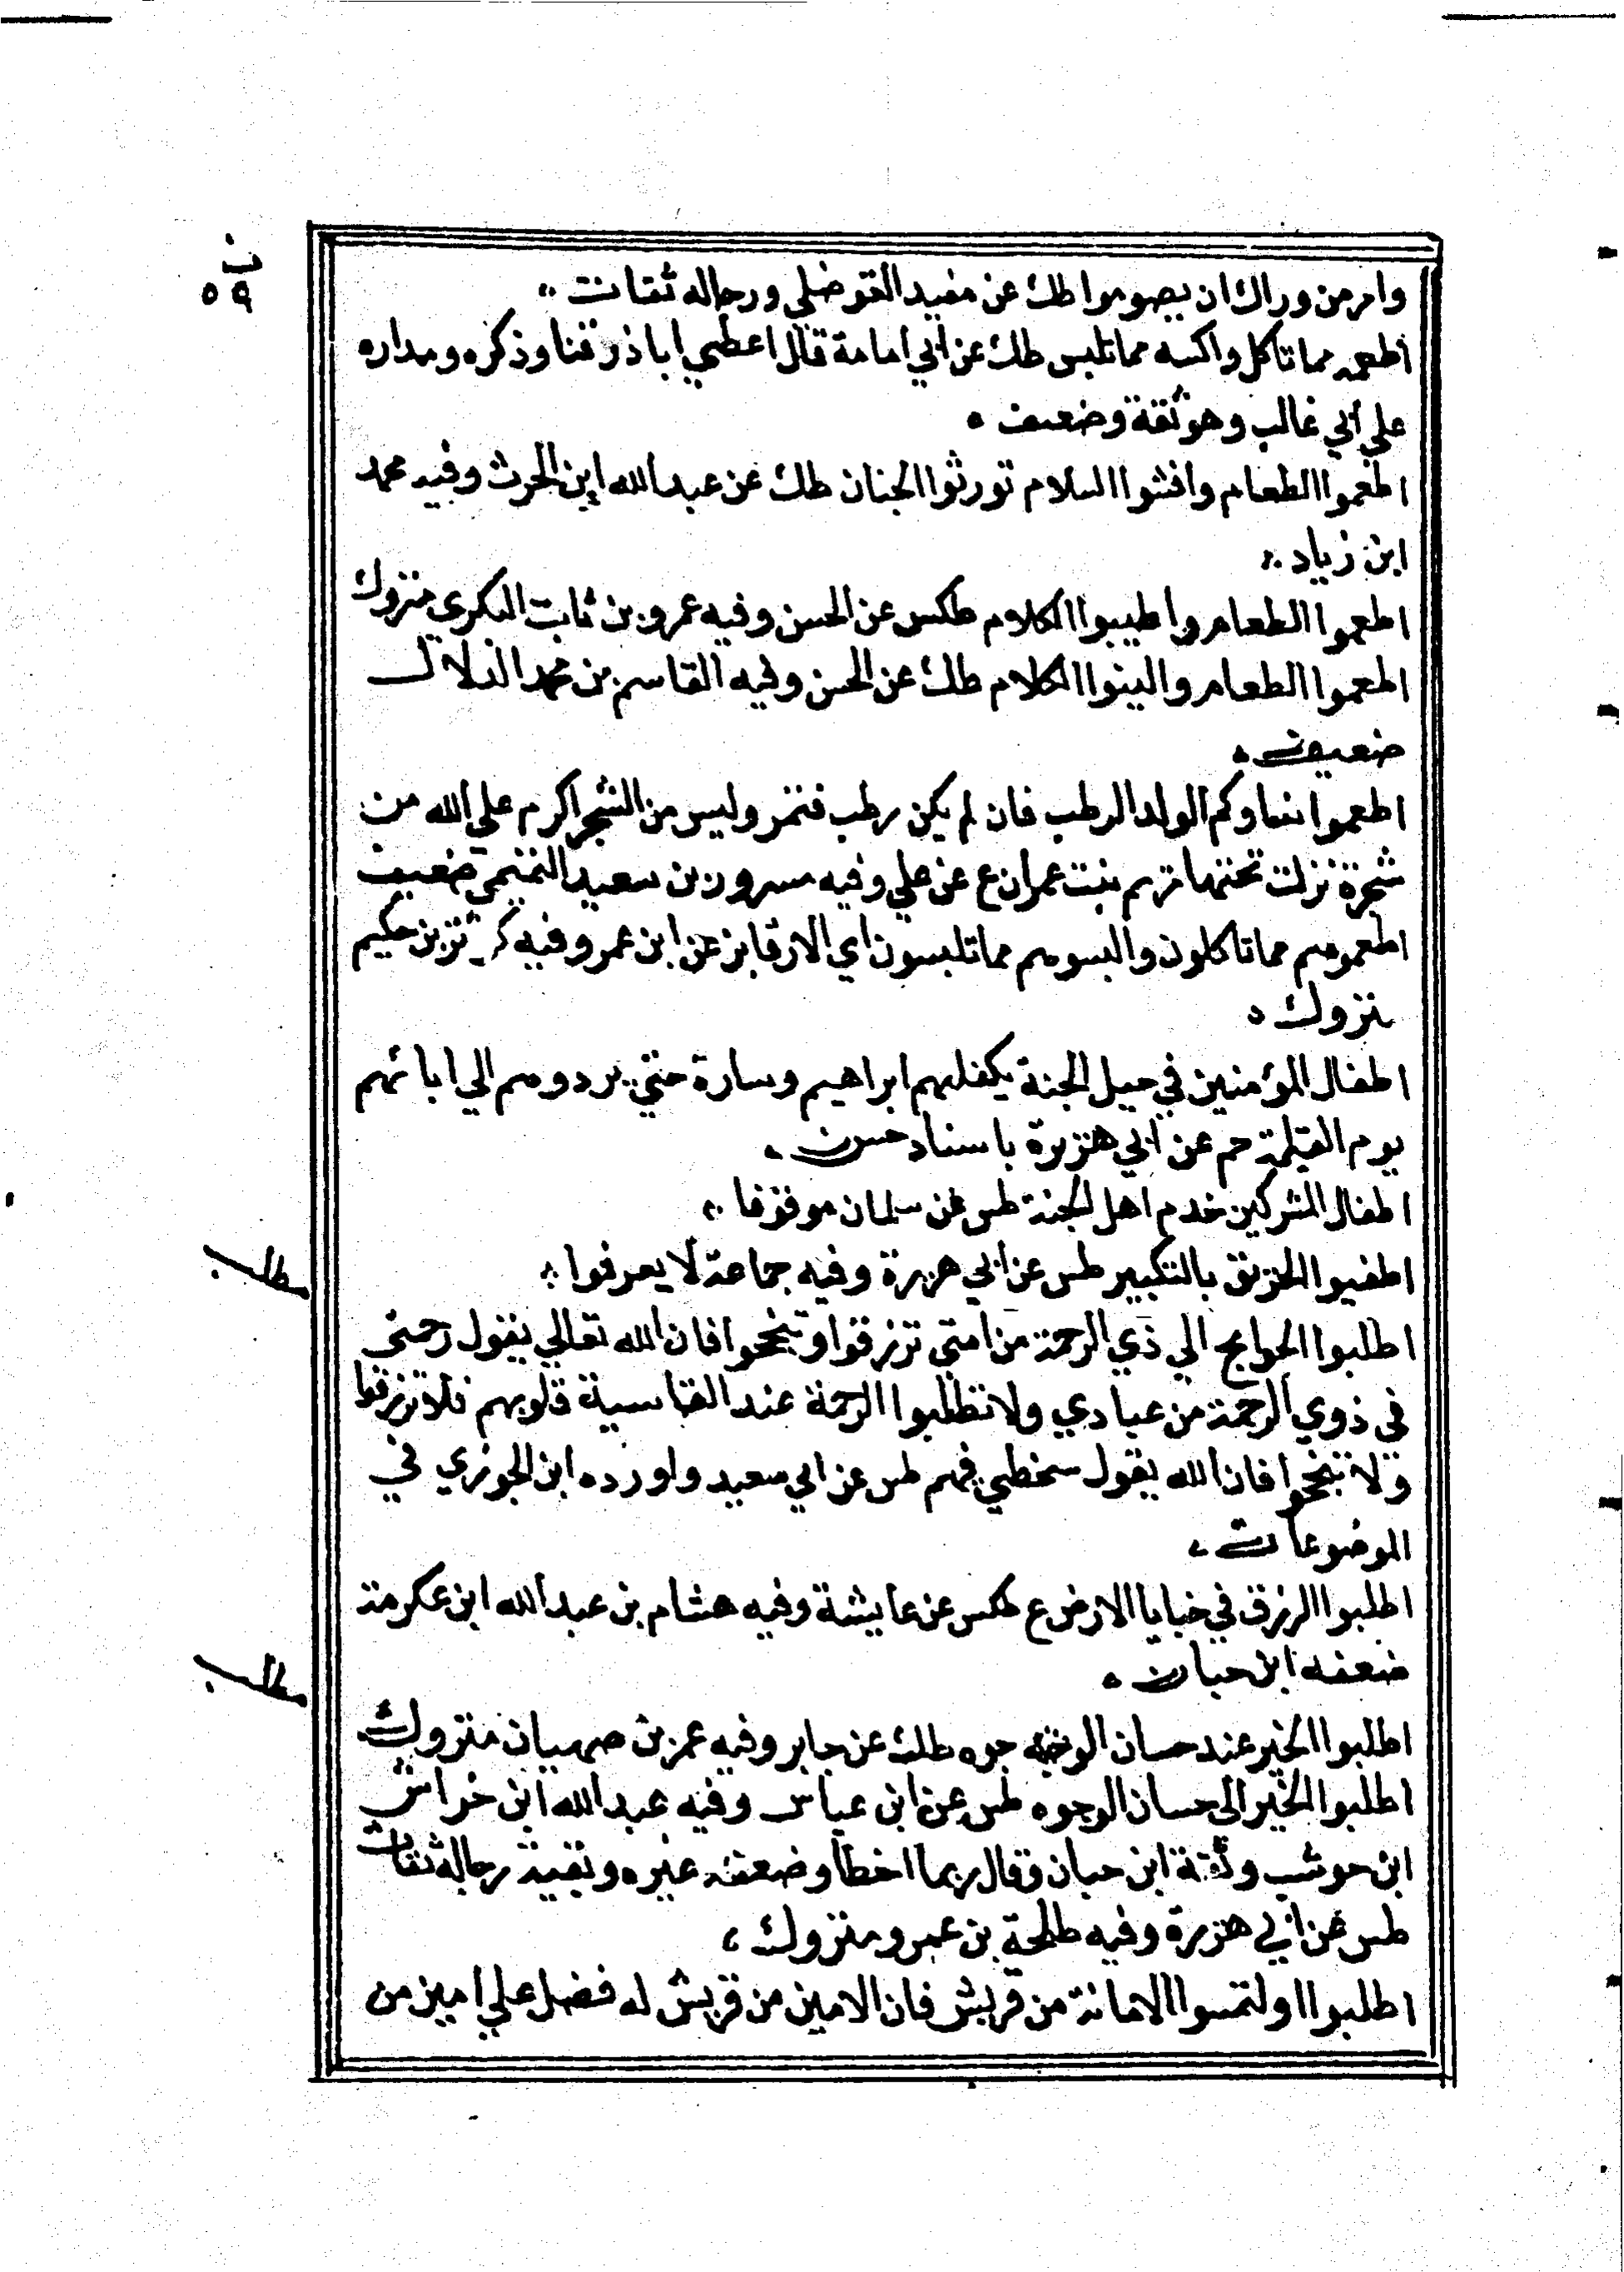 ن
٥٩
وامر من وراك ان يصوموا طك عن مفيد القوضلي ورجاله ثقات
اطعمه مما تاكل واكسه مما تلبس طك عن ابي امامة قال اعطي اباذر قنا وذكره ومداره
علي ابي غالب وهو ثقة وضعيف
اطعموا الطعام وافشوا السلام تورثوا الجنان طك عن عبدالله ابن الحرث وفيه محمد
ابن زياد
اطعموا الطعام واطيبوا الكلام طكس عن الحسن وفيه عمرو بن ثابت البكري متروك
اطعموا الطعام والينوا الكلام طك عن الحسن وفيه القاسم بن محمد الدلال
ضعيف
اطعموا نساوكم الولد الرطب فان لم يكن رطب فتمر وليس من الشجر اكرم علي الله من
شجرة نزلت تحتها مريم بنت عمران ع عن علي وفيه مسرور بن سعيد التميمي ضعيف
اطعموهم مما تاكلون والبسوهم مما تلبسون اي الارقا بز عن ابن عمر وفيه كوثر بن حكيم
متروك
اطفال المؤمنين في جبل الجنة يكفلهم ابراهيم وسارة حتي يردوهم الي ابائهم
يوم القيمة حم عن ابي هريرة باسناد حسن
اطفال المشركين خدم اهل الجنة طس عن سلمان موقوفا
اطفيوا الحريق بالتكبير طس عن ابي هريرة وفيه جماعة لا يعرفوا
مطلب
اطلبوا الحوايج الي ذي الرحمة من امتي ترزقوا وتنجحوا فان الله تعالي يقول رحمتي
في ذوي الرحمة من عبادي ولا تطلبوا الرحمة عند القاسية قلوبهم فلا ترزقوا
ولا تنجحوا فان الله يقول سخطي فيهم طس عن ابي سعيد واورده ابن الجوزي في
الموضوعات
اطلبوا الرزق في خبايا الارض ع طكس عن عايشة وفيه هشام بن عبدالله ابن عكرمة
ضعفه ابن حبان
مطلب
اطلبوا الخير عند حسان الوجوه طك عن جابر وفيه عمر بن صهبان متروك
اطلبوا الخير الى حسان الوجوه طس عن ابن عباس وفيه عبدالله ابن خراش
ابن حوشب وثقة ابن حبان وقال ربما اخطا وضعفه غيره وبقية رجاله ثقات
طس عن ابي هريرة وفيه طلحة بن عمرو متروك
اطلبوا اولتمسوا الامانة من قريش فان الامين من قريش له فضل علي امين من